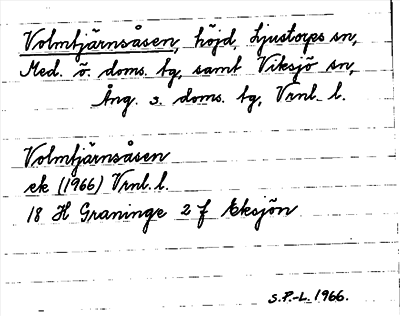 Volmtjärnsåsen, höjd, Ljustorps sn,
Med. ö. doms. tg, samt Viksjö sn,
Ång. s. doms. tg, Vrnl. l.
Volmtjärnsåsen
ek (1966) Vrnl. l.
18 H Graninge 2 f Eksjön
S.P.-L. 1966.